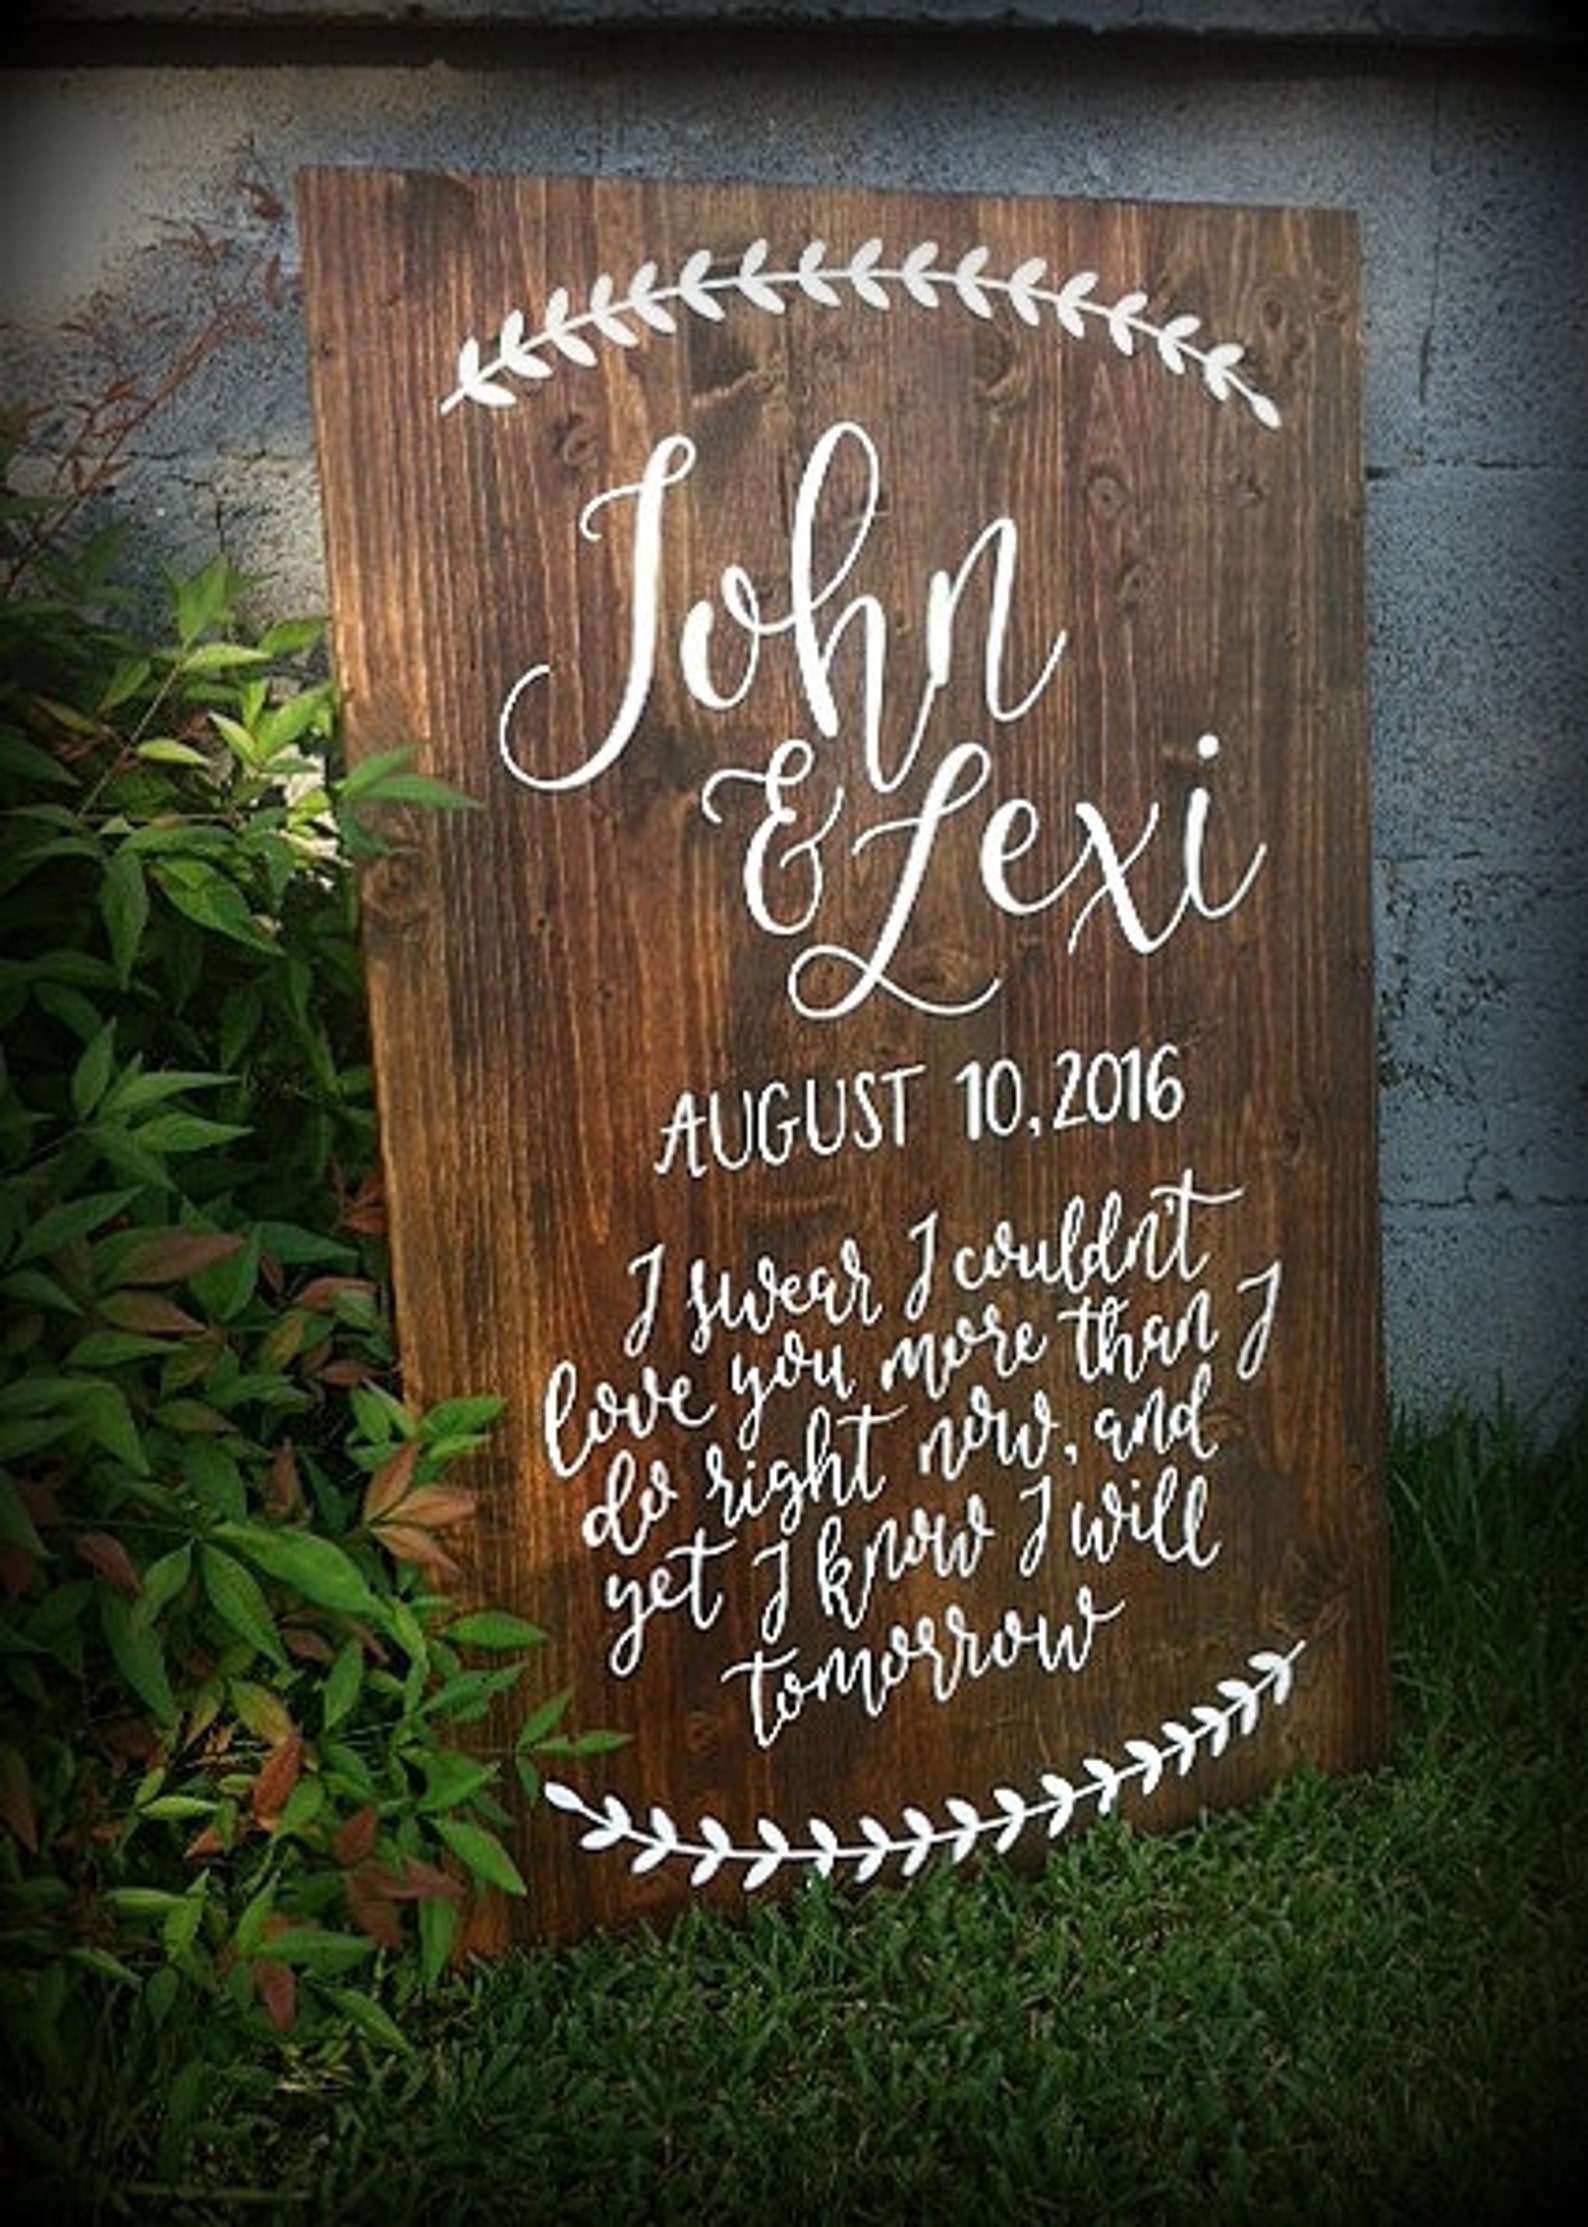 John
& Lexi
AUGUST 10, 2016
I swear I couldn't
love you more than I
do right now, and
yet I know I will
tomorrow